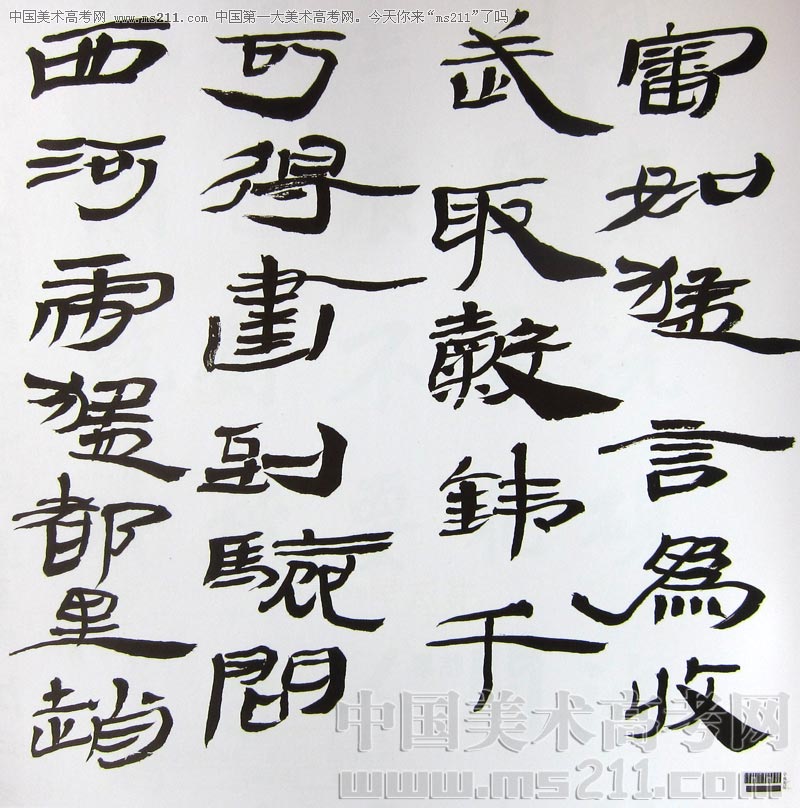 中国美术高考网 www.ms211.com 中国第一大美术高考网。今天你来“ms211”了吗
審如猛言為收
武取千
可得畫到問
西河都里趙
中国美术高考网
www.ms211.com